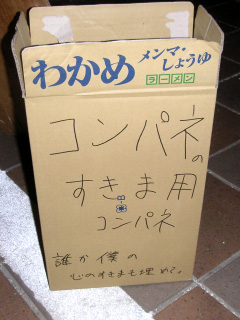 わかめ
メンマ・
しょうゆ
ラーメン
コンパネ
の
すきま用
コンパネ
誰か僕の
心のすきまも埋めて。